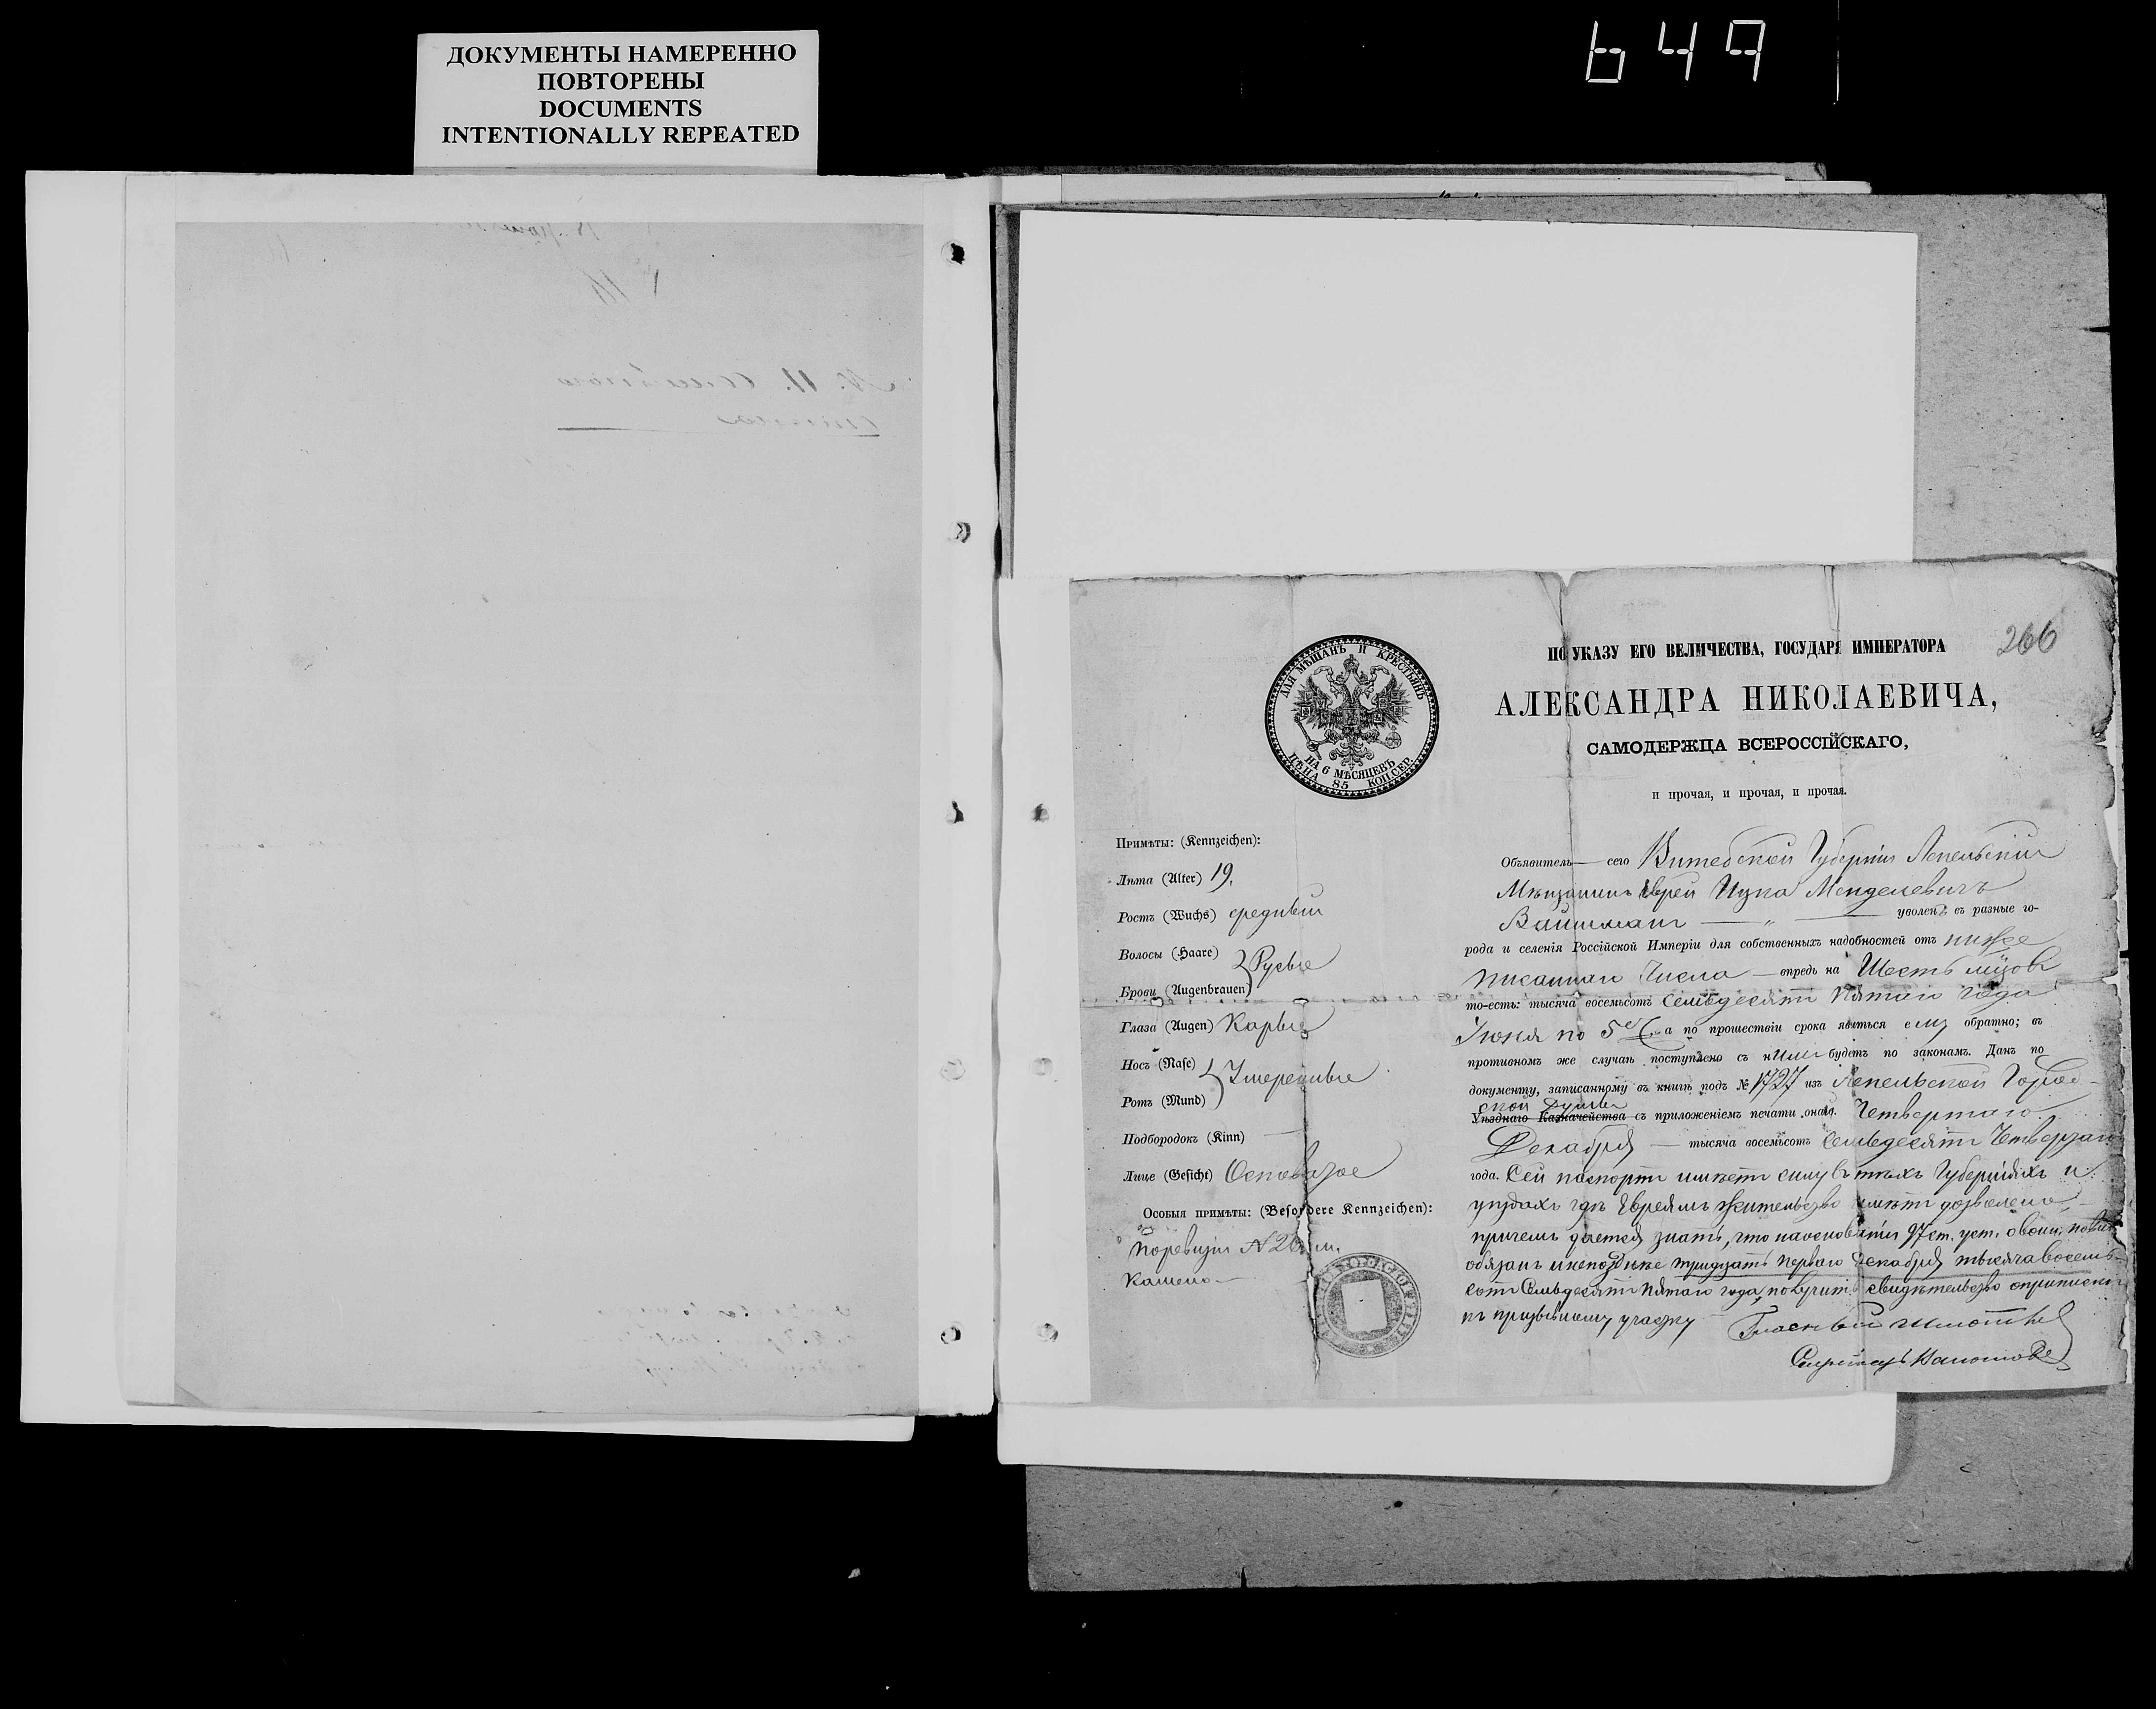 ДОКУМЕНТЫ НАМЕРЕННО
ПОВТОРЕНЫ
DOCUMENTS
INTENTIONALLY REPEATED
649
266
ДЛЯ МѢЩАНЪ И КРЕСТЬЯНЪ
НА 6 МѢСЯЦЕВЪ
ЦѢНА 85 КОП. СЕР.
ПО УКАЗУ ЕГО ВЕЛИЧЕСТВА, ГОСУДАРЯ ИМПЕРАТОРА
АЛЕКСАНДРА НИКОЛАЕВИЧА,
САМОДЕРЖЦА ВСЕРОССІЙСКАГО,
и прочая, и прочая, и прочая.
Примѣты: (Kennzeichen):
Лѣта (Alter) 19.
Ростъ (Wuchs) средній
Волосы (Haare)
Брови (Augenbrauen) Русые
Глаза (Augen) Карые
Носъ (Nase)
Ротъ (Mund) Умеренные
Подбородокъ (Kinn) —
Лице (Gesicht)
Особыя примѣты: (Besondere Kennzeichen):
По ревизіи №
Объявитель сего Витебской Губерніи Лепельскій
Мѣщанинъ Еврей Ицка Менделевичъ
Вайнманъ — " — уволенъ въ разные го-
рода и селенія Россійской Имперіи для собственныхъ надобностей отъ ниже
писаннаго числа — впредь на Шесть мѣсяцовъ
то-есть: тысяча восемьсотъ семьдесятъ пятаго года
Іюня по 5е а по прошествіи срока явиться ему обратно; въ
противномъ же случаѣ поступлено съ нимъ будетъ по законамъ. Данъ по
документу, записанному въ книгѣ подъ № 1727 изъ Лепельской Город-
ской Думы
Уѣзднаго Казначейства съ приложеніемъ печати оной. Четвертаго
Декабря — тысяча восемьсотъ семьдесятъ Четвертаго
года. Сей паспортъ имѣетъ силу въ тѣхъ Губерніяхъ и
уѣздахъ гдѣ Евреямъ жительство имѣть дозволено,
причемъ дается знать, что на основаніи 97 ст. уст. о воин. повин.
обязанъ не позднѣе тридцать перваго Декабря тысяча восемь-
сотъ семьдесятъ пятаго года, получить свидѣтельство о припискѣ
къ призывному участку
Гласный
Секретарь